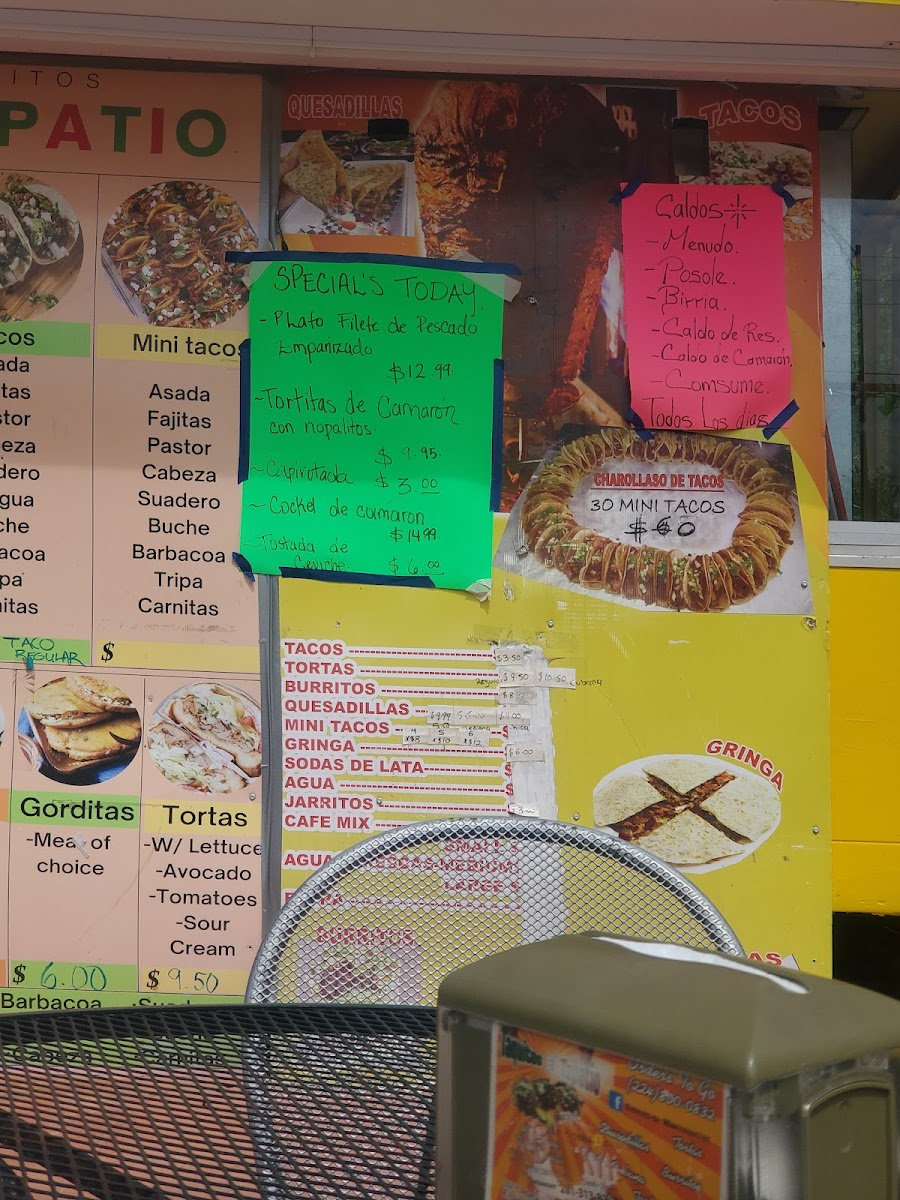 ITOS
PATIO
cos
ada
tas
stor
eza
dero
gua
che
acoa
pa
itas
TACO
REGULAR
Mini tacos
Asada
Fajitas
Pastor
Cabeza
Suadero
Buche
Barbacoa
Tripa
Carnitas
$
Gorditas
-Meat of
choice
$ 6.00
Barbacoa
Tortas
-W/ Lettuce
-Avocado
-Tomatoes
-Sour
Cream
$ 9.50
QUESADILLAS
TACOS
SPECIAL'S TODAY.
- Plato Filete de Pescado
Empanizado
$12.99
~Tortitas de Camarón
con nopalitos.
$ 9.95.
~Capirotada $ 3.00
~ Cocktel de camaron
$14.99.
~Tostada de
Ceviche $ 6.00
Caldos
- Menudo.
- Posole.
- Birria.
- Caldo de Res.
- Caldo de Camarón.
- Comsume.
Todos Los dias
CHAROLLASO DE TACOS
30 MINI TACOS
TACOS $3.50
TORTAS $9.50 $10.50
BURRITOS
QUESADILLAS
MINI TACOS
GRINGA $6.00
SODAS DE LATA $
AGUA $
JARRITOS
CAFE MIX
SMALL
LARGE
BURRITOS
GRINGA
Orders To Go
(224)800-0832